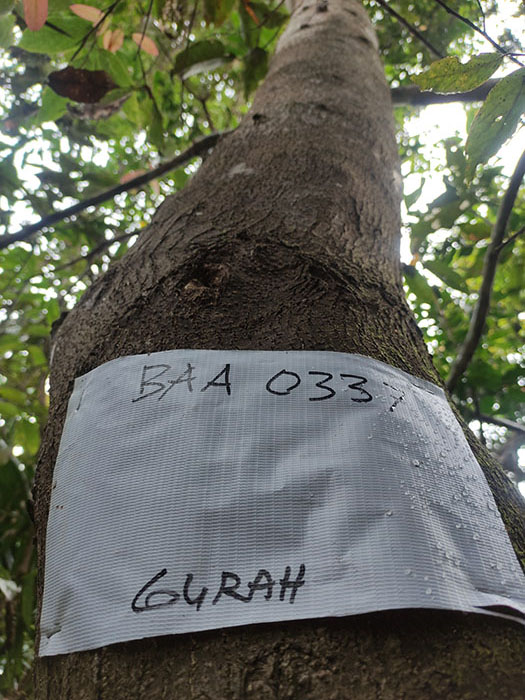 BAA 0337
GURAH